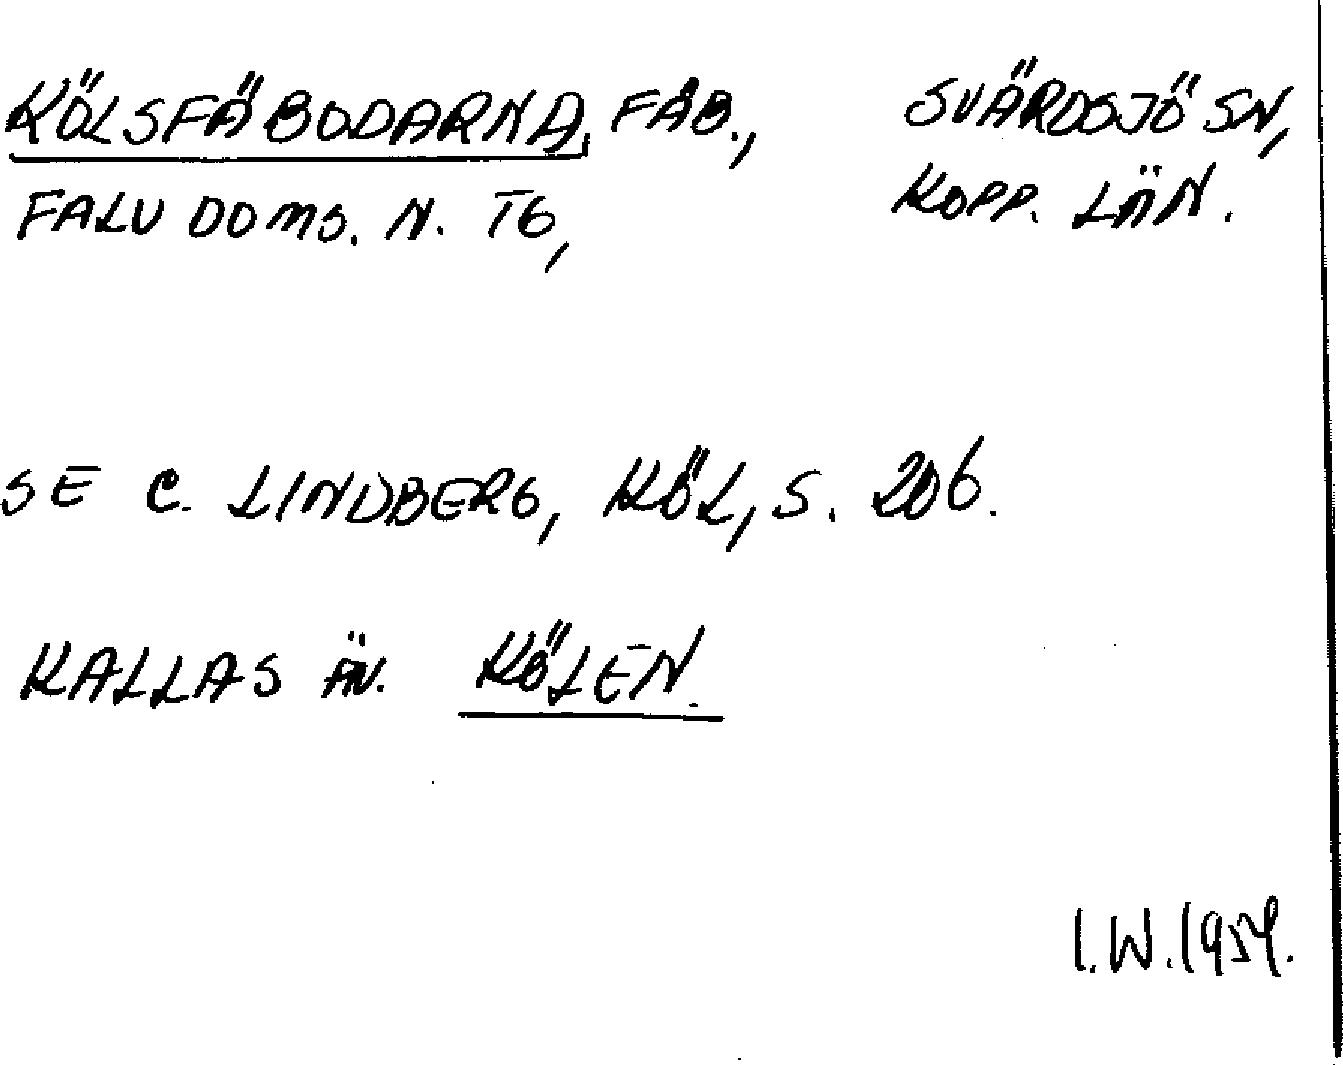 KÖLSFÄBODARNA, FÄB., SVÄRDSJÖ SN,
FALU DOMS. N. TG, KOPP. LÄN.
SE C. LINDBERG, KÖL, S. 206.
KALLAS ÄV. KÖLEN.
I.W. 1954.